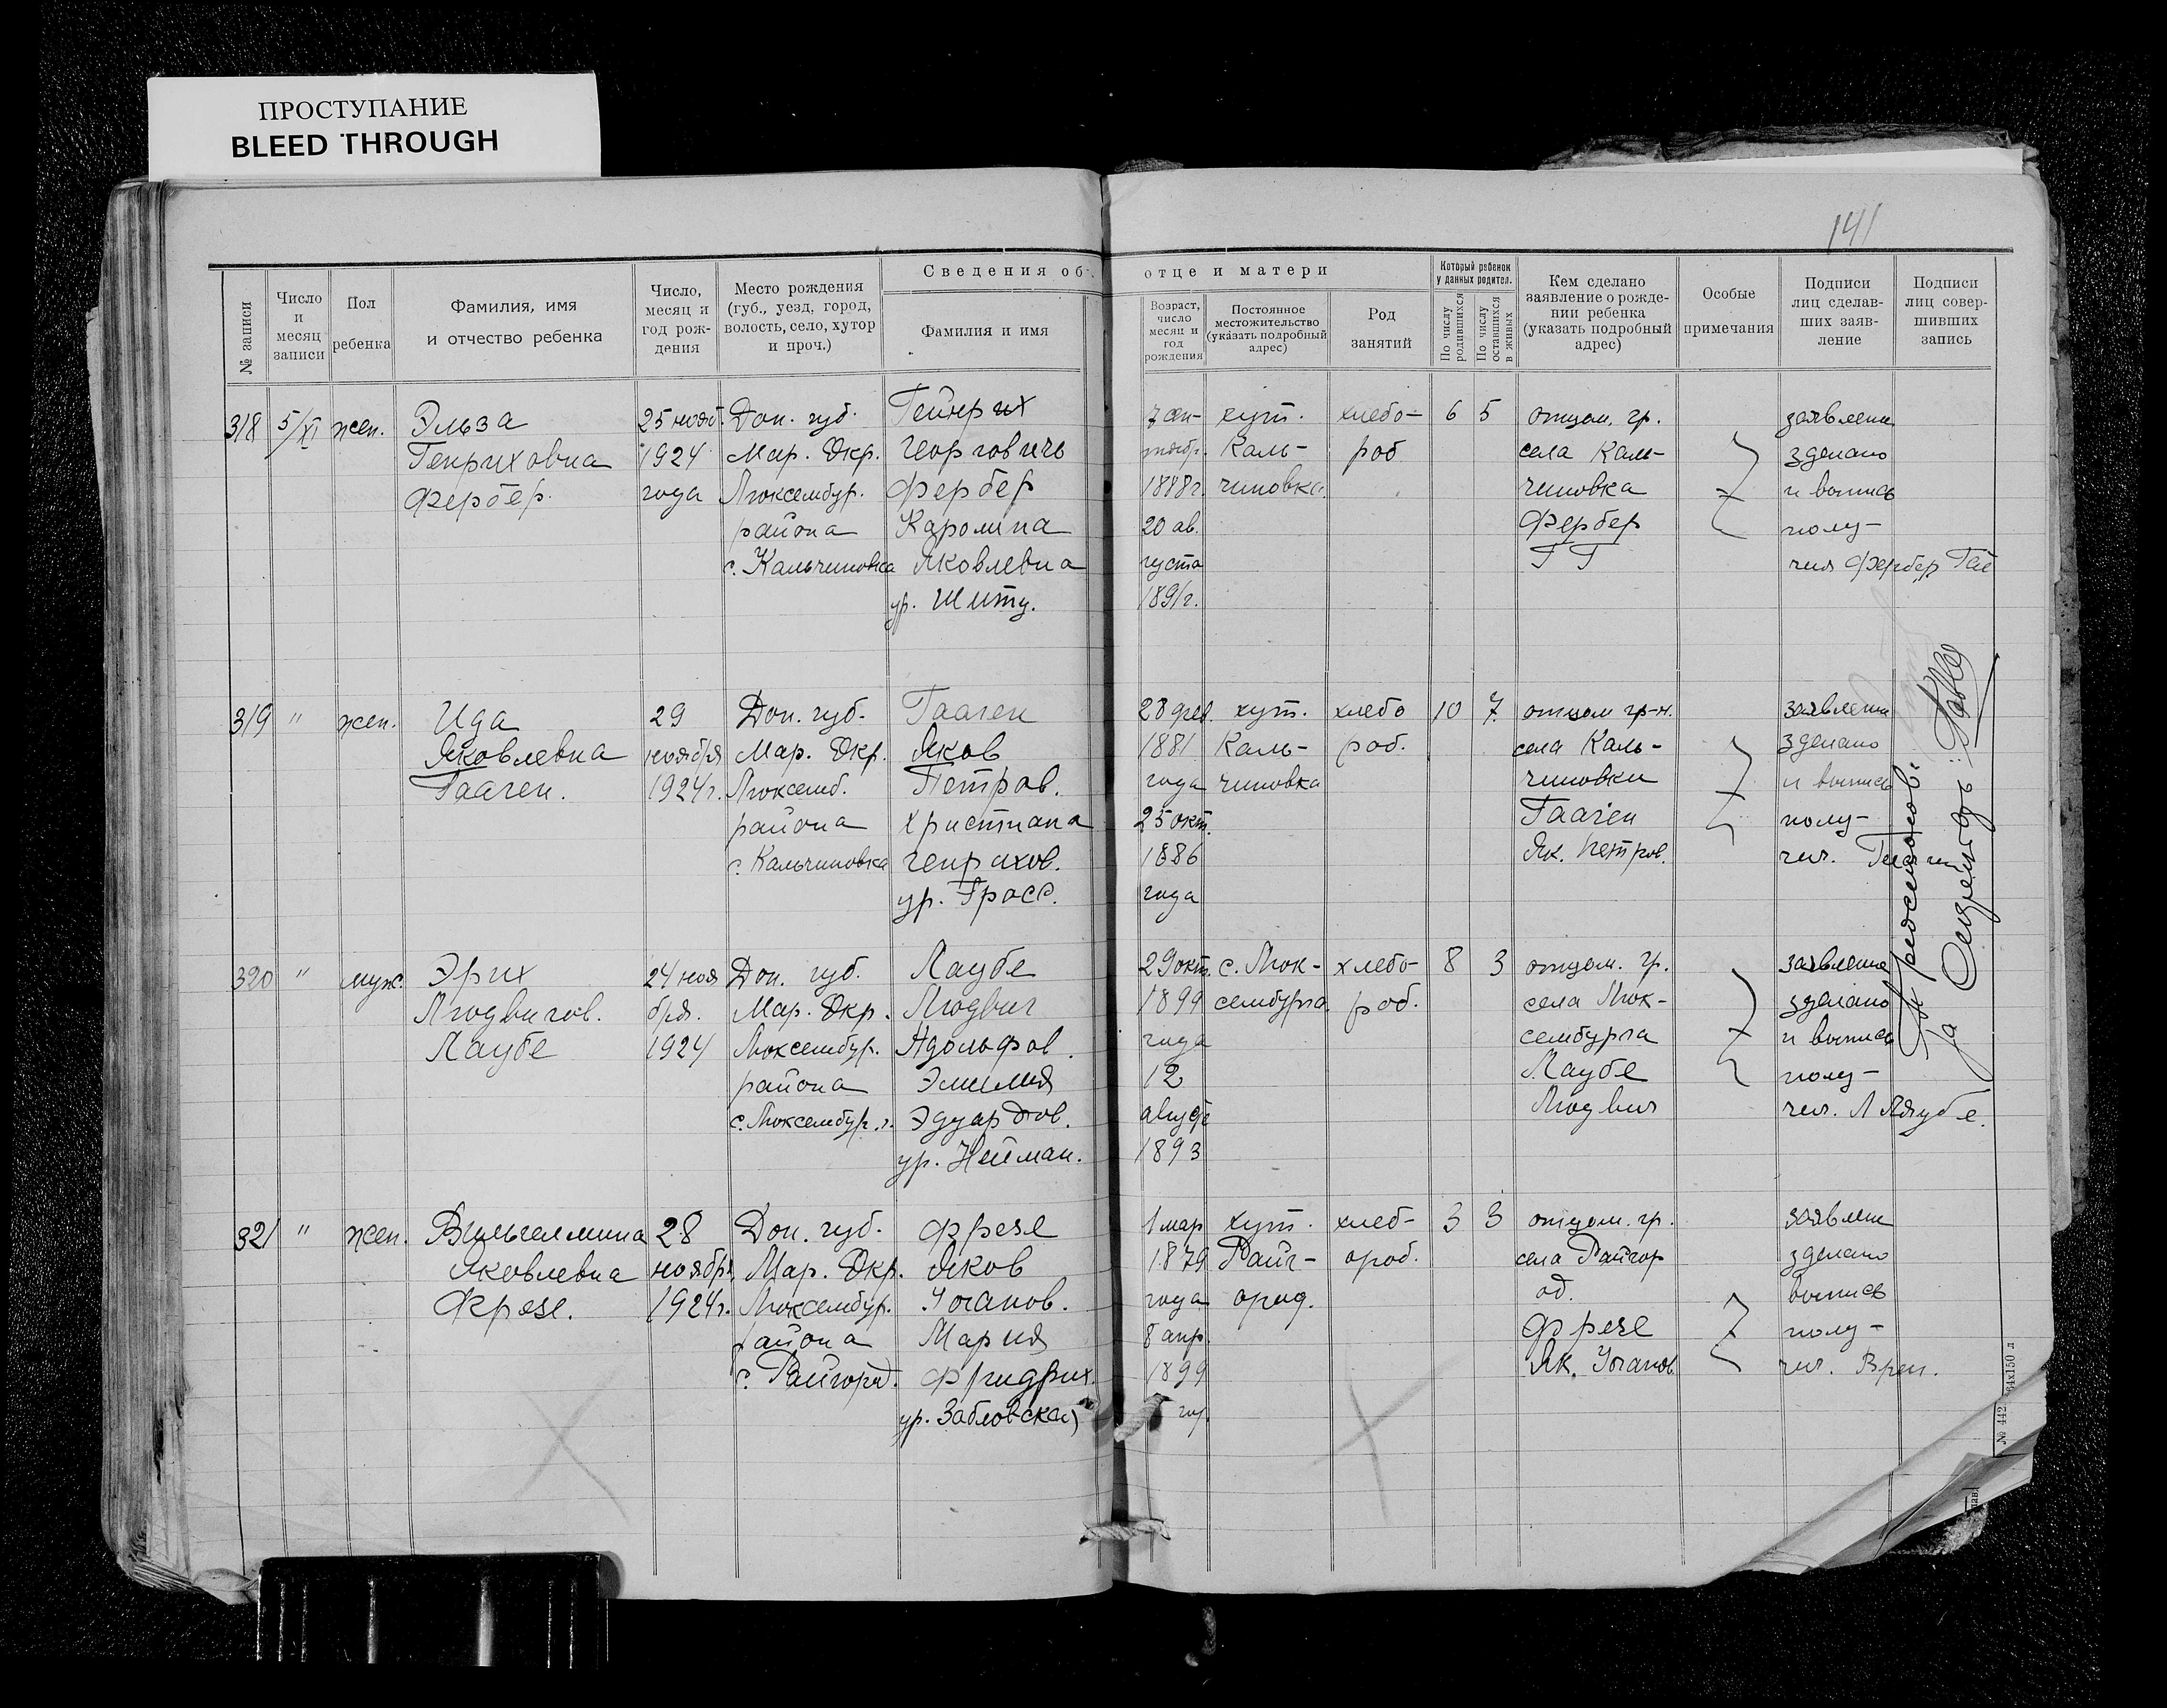 ПРОСТУПАНИЕ
BLEED THROUGH
141
№ записи
Число
и
месяц
записи
Пол
ребенка
Фамилия, имя
и отчество ребенка
Число,
месяц и
год рож-
дения
Место рождения
(губ., уезд, город,
волость, село, хутор
и проч.)
Сведения об
отце и матери
Фамилия и имя
Возраст,
число
месяц и
год
рождения
Постоянное
местожительство
(указать подробный
адрес)
Род
занятий
Который ребенок
у данных родител.
По числу
родившихся
По числу
оставшихся
в живых
Кем сделано
заявление о рожде-
нии ребенка
(указать подробный
адрес)
Особые
примечания
Подписи
лиц сделав-
ших заяв-
ление
Подписи
лиц совер-
шивших
запись
318
5/XI
жен.
Эльза
Генриховна
Фербер.
25 нояб.
1924
года
Дон. губ.
Мар. Окр.
Люксембур.
района
с. Кальчиновка
Гейнрих
Георгович
Фербер
Каролина
Яковлевна
ур. Шитц.
1888г.
20 ав.
густа
1891г.
хут.
Каль-
чиновка
хлебо-
роб
6
5
отцом, гр.
села Каль-
чиновка
Фербер
Г Г
зделано
и выпись
полу-
чил Фербер
319
"
жен.
Ида
Яковлевна
Гааген.
29
ноября
1924г.
Дон. губ.
Мар. Окр.
Люксемб.
района
с. Кальчиновка
Гааген
Яков
Петров.
Христиана
генрихов.
ур. Гросс.
28 фев.
1881
года
25 окт.
1886
года
хут.
Каль-
чиновка
хлебо
роб.
10
7
отцом гр-н.
села Каль-
чиновки
Гааген
Як. Петров.
зделано
и выпись
полу-
чил.
320
"
муж.
Эрих
Людвигов.
Лаубе
24 ноя
бря.
1924
Дон. губ.
Мар. Окр.
Люксембур.
района
с. Люксембур.г.
Лаубе
Людвиг
Адольфов.
Эмилия
Эдуардов.
ур. Нейман.
29 окт.
1899
года
12
1893
с. Люк-
сембурга
хлебо-
роб.
8
3
отцом. гр.
села Люк-
сембурга
Лаубе
Людвиг
зделано
и выпись
полу-
чил. Л Ляубе.
321
"
жен.
Вильгелмина
Яковлевна
Фрезе.
28
ноября
1924г.
Дон. губ.
Мар. Окр.
Люксембур.
района
с. Райгород.
Фрезе
Яков
Иоганов.
Мария
Фридрих.
ур. Забловская
1 мар
1879
года
8 апр.
1899
хут.
Райг-
ород.
хлеб-
ороб.
3
3
отцом. гр.
села Райгор
од.
Фрезе
Як. Иоганов
зделано
выпись
полу-
чил.